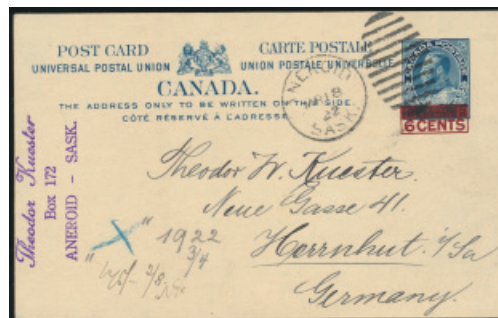 POST CARD CARTE POSTALE
UNIVERSAL POSTAL UNION UNION POSTALE UNIVERSELLE
CANADA.
THE ADDRESS ONLY TO BE WRITTEN ON THIS SIDE.
CÔTÉ RÉSERVÉ À L'ADRESSE.
NEROID
18
22
SASK.
CANADA POSTAGE
6 CENTS
Theodor Kuester
Box 172
ANEROID - SASK.
Theodor W. Kuester.
Neue Gasse 41.
Herrnhut i/Sa
Germany.
"X" 1922
3/4